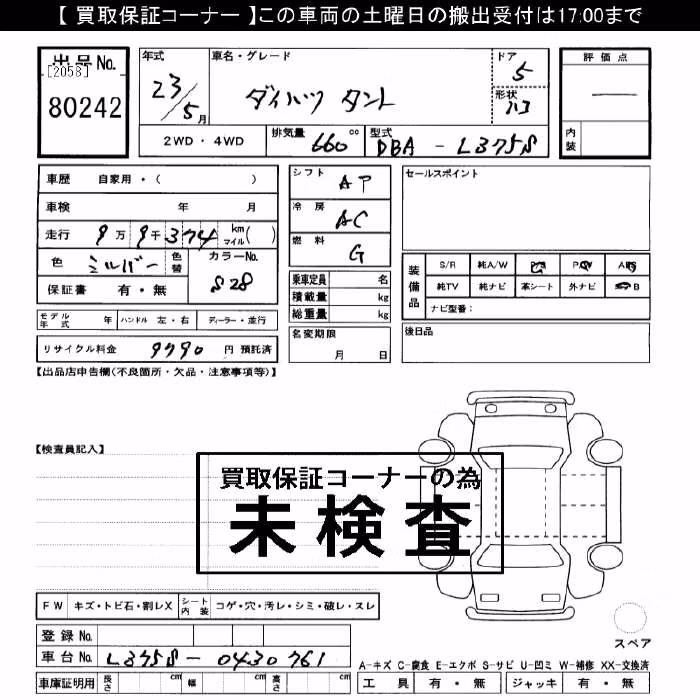 【 買取保証コーナー 】この車両の土曜日の搬出受付は17:00まで
出品No.
[2058]
80242
年式
23/5月
車名・グレード
ダイハツ タント
ドア
5
形状
評価点
内装
2WD・4WD
排気量 660 cc
型式 DBA - L375S
車歴 自家用・( )
車検 年 月
走行 9万9千374 km マイル( )
色 シルバー 色替
カラーNo. S28
保証書 有・無
シフト AT
冷房 AC
燃料 G
乗車定員 名
積載量 kg
総重量 kg
名変期限 月 日
セールスポイント
装備品
S/R 純A/W P/S P/W ABS
純TV 純ナビ 革シート 外ナビ B
ナビ型番:
後日品
モデル年式 年 ハンドル 左・右 ディーラー・並行
リサイクル料金 9790 円 預託済
【出品店申告欄(不良箇所・欠品・注意事項等)】
【検査員記入】
買取保証コーナーの為
未検査
FW キズ・トビ石・割レX シート内装 コゲ・穴・汚レ・シミ・破レ・スレ
登録No.
車台No. L375S-0430761
車庫証明用 長さ cm 幅 cm 高さ cm
スペア
A-キズ C-腐食 E-エクボ S-サビ U-凹ミ W-補修 XX-交換済
工具 有・無 ジャッキ 有・無